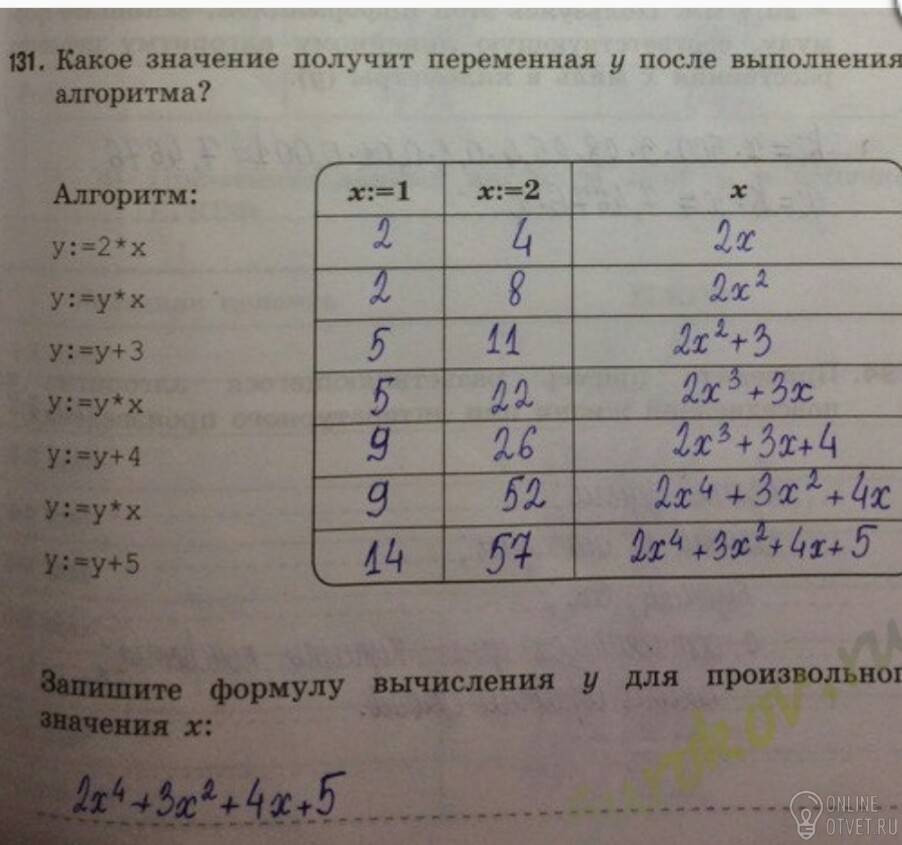 131. Какое значение получит переменная y после выполнения
алгоритма?
Алгоритм: x:=1 x:=2 x
y:=2*x 2 4 2x
y:=y*x 2 8 2x²
y:=y+3 5 11 2x²+3
y:=y*x 5 22 2x³+3x
y:=y+4 9 26 2x³+3x+4
y:=y*x 9 52 2x⁴+3x²+4x
y:=y+5 14 57 2x⁴+3x²+4x+5
Запишите формулу вычисления y для произвольног
значения x:
2x⁴+3x²+4x+5
ONLINE
OTVET.RU